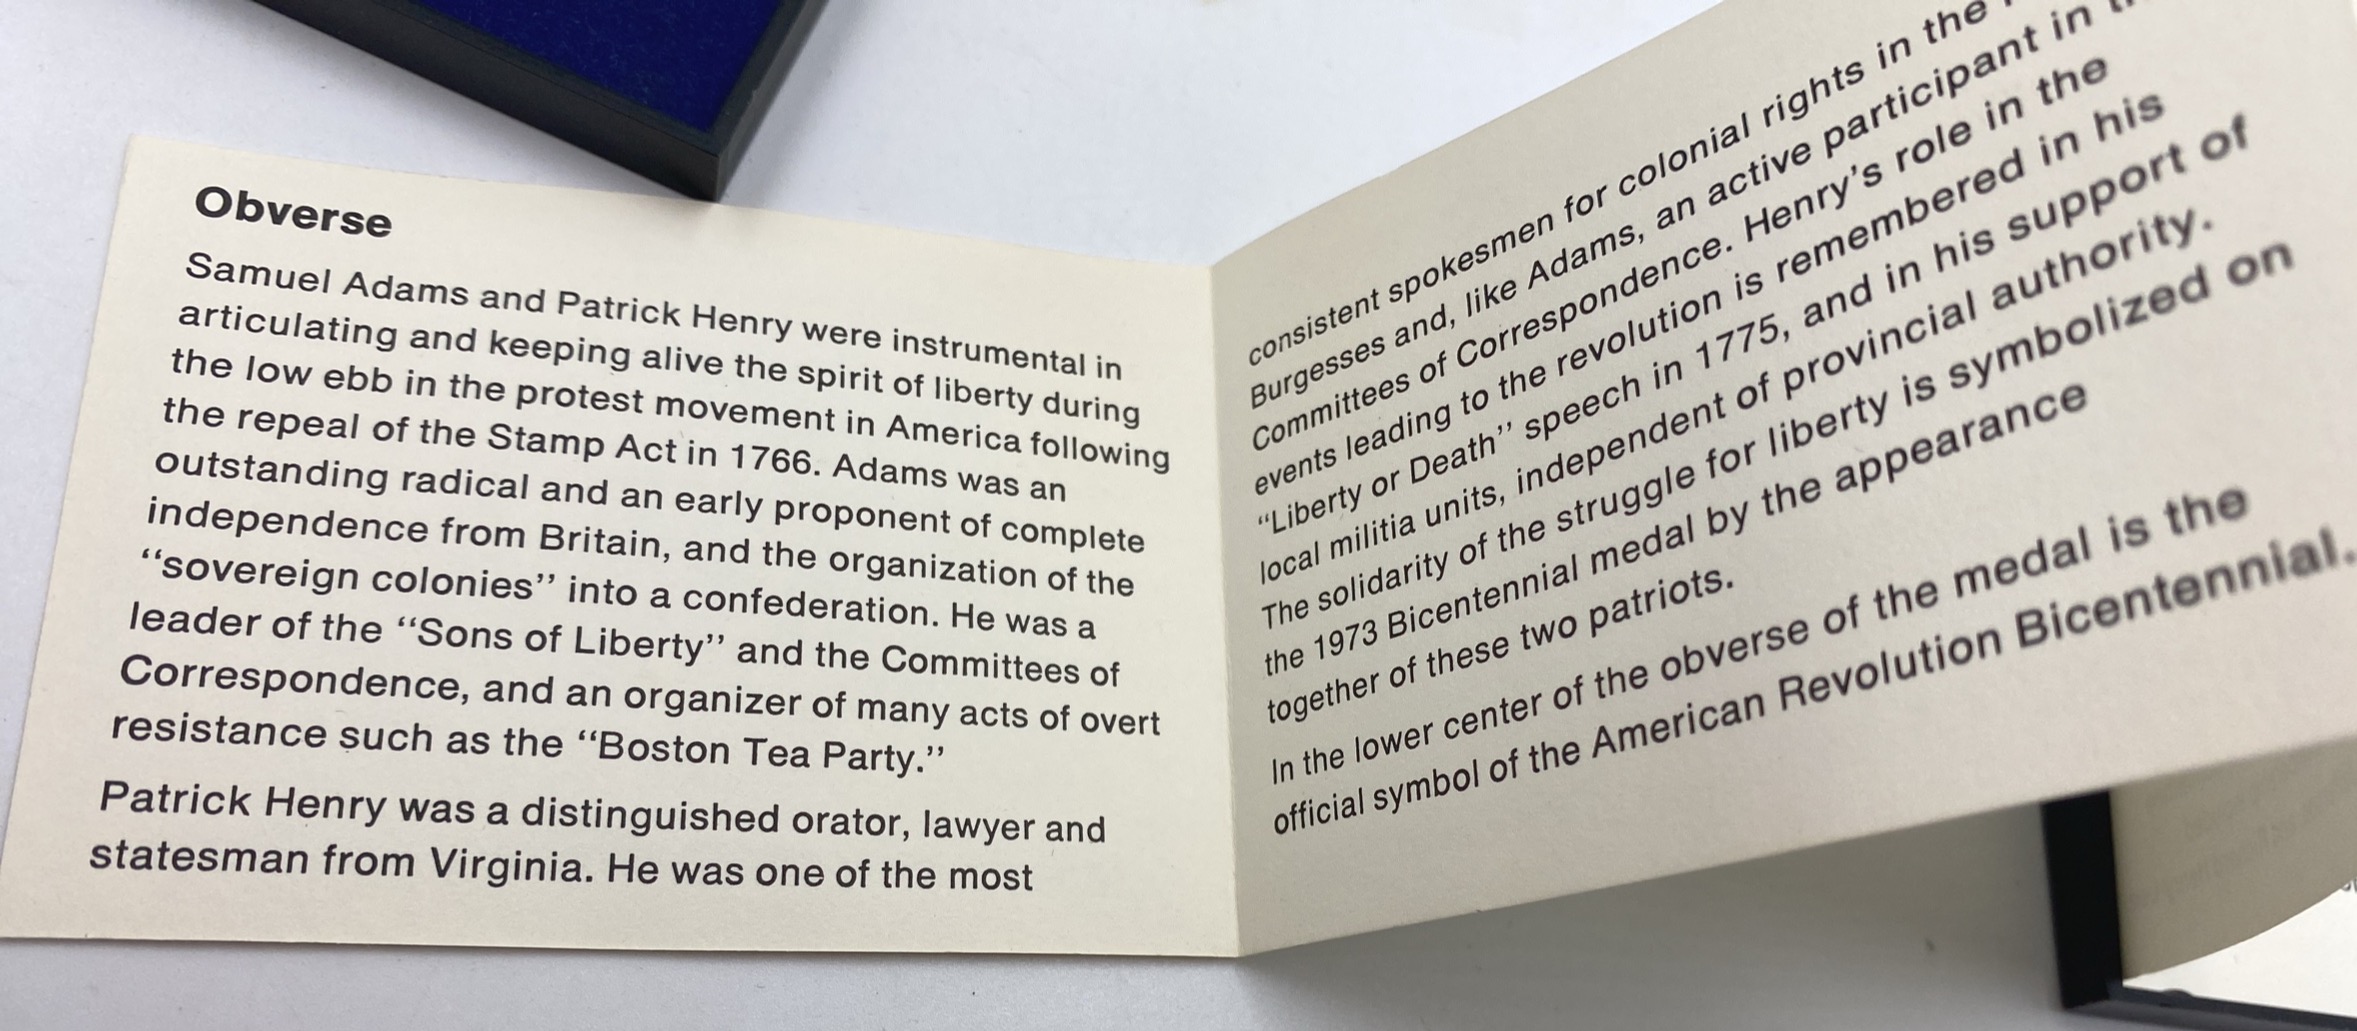 Obverse
Samuel Adams and Patrick Henry were instrumental in
articulating and keeping alive the spirit of liberty during
the low ebb in the protest movement in America following
the repeal of the Stamp Act in 1766. Adams was an
outstanding radical and an early proponent of complete
independence from Britain, and the organization of the
“sovereign colonies” into a confederation. He was a
leader of the “Sons of Liberty” and the Committees of
Correspondence, and an organizer of many acts of overt
resistance such as the “Boston Tea Party.”
Patrick Henry was a distinguished orator, lawyer and
statesman from Virginia. He was one of the most
consistent spokesmen for colonial rights in the
Burgesses and, like Adams, an active participant in
Committees of Correspondence. Henry’s role in the
events leading to the revolution is remembered in his
“Liberty or Death” speech in 1775, and in his support of
local militia units, independent of provincial authority.
The solidarity of the struggle for liberty is symbolized on
the 1973 Bicentennial medal by the appearance
together of these two patriots.
In the lower center of the obverse of the medal is the
official symbol of the American Revolution Bicentennial.